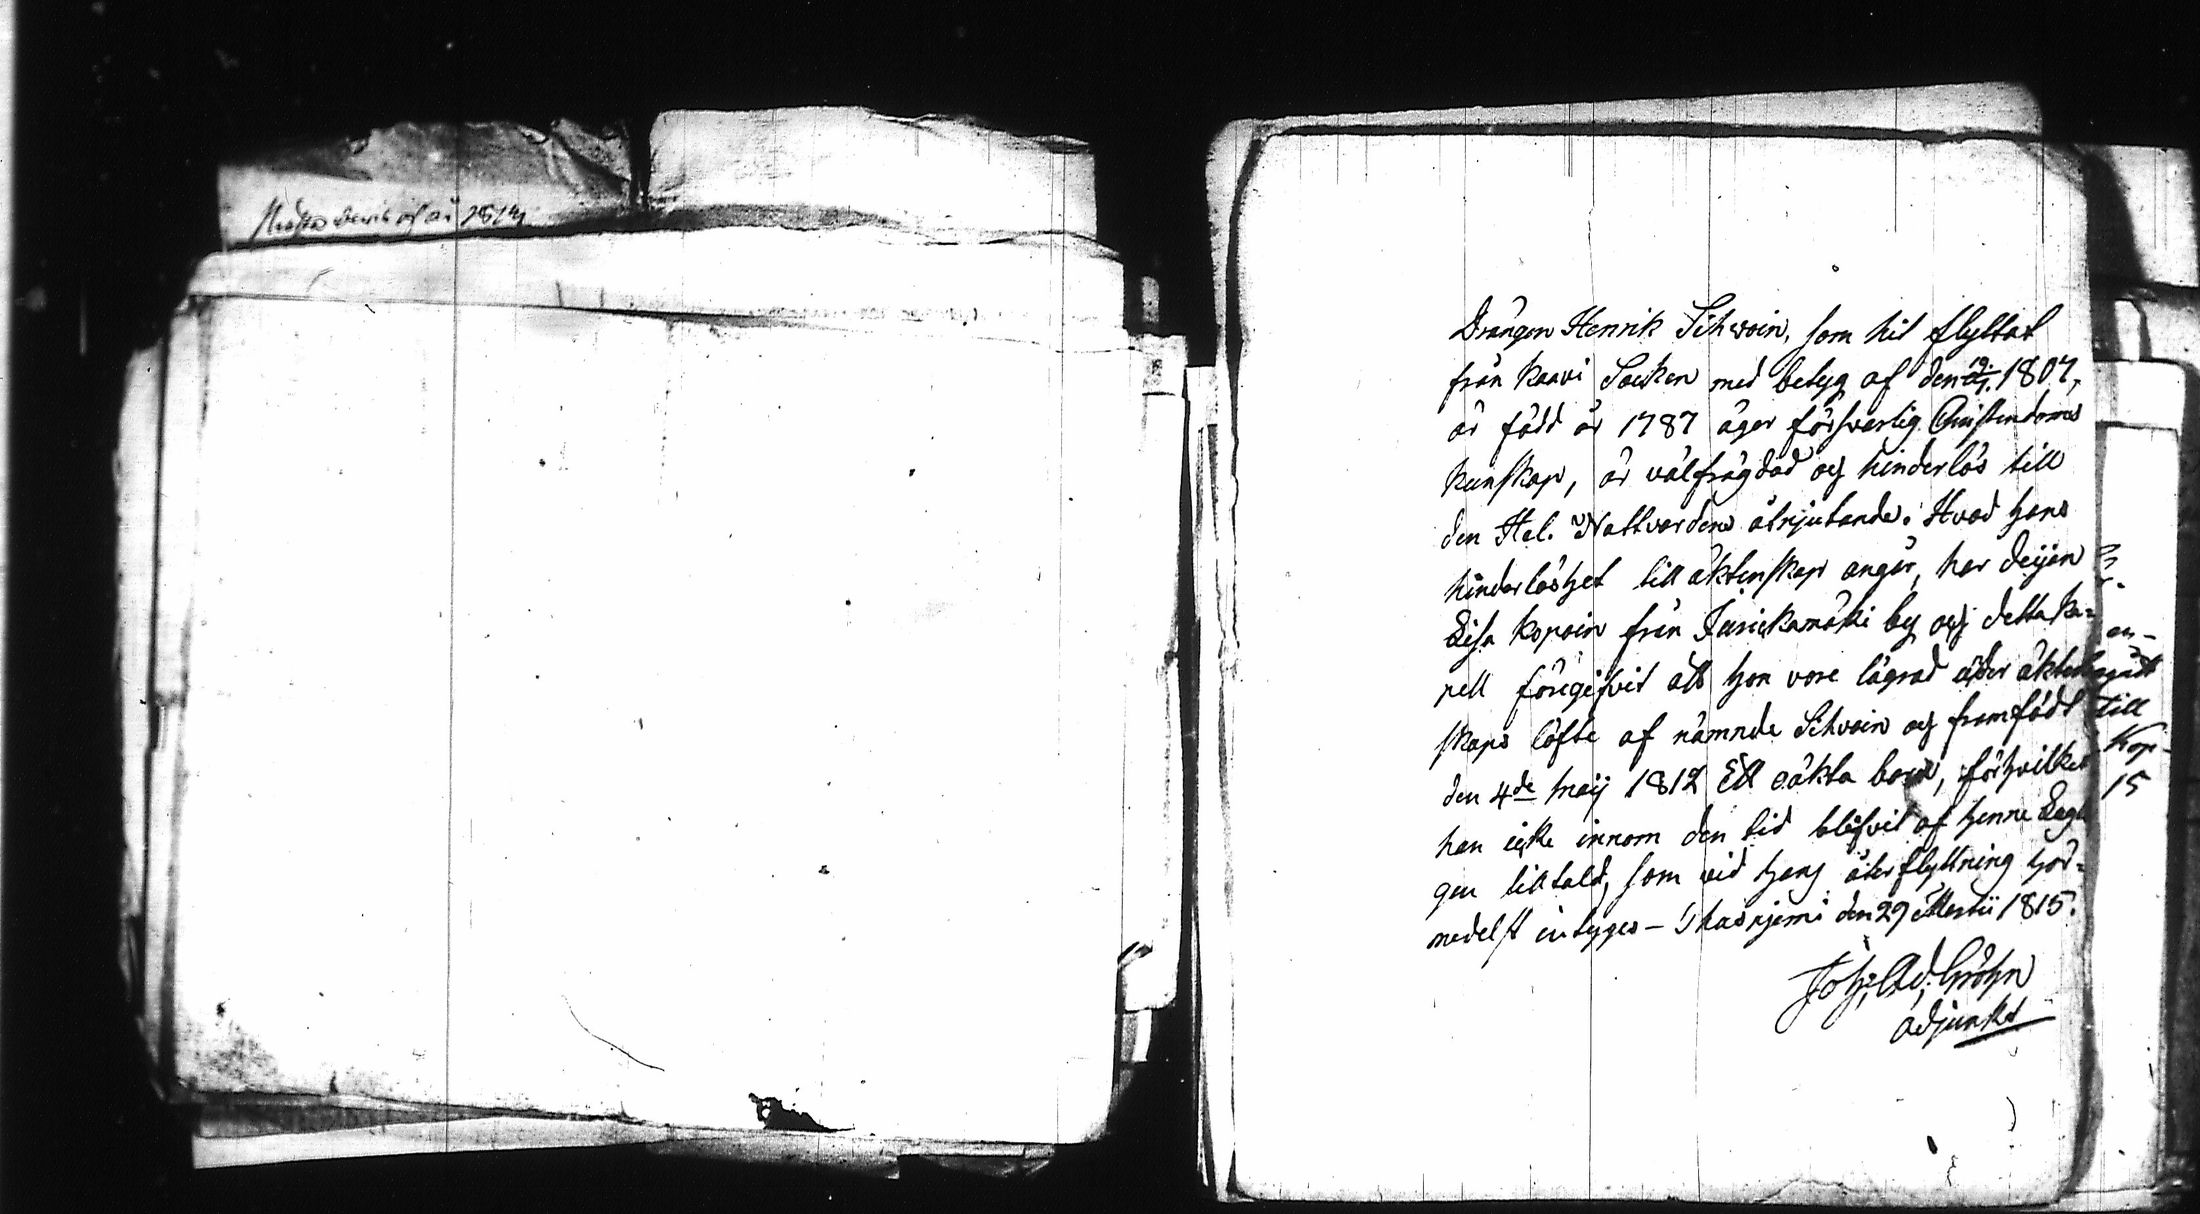 Drängen Henrik Sihvoin, som hit flyttat
från Kaavi Socken med betyg af den 1807,
är född år 1787 äger försvarlig Christendoms
kunskap, är välfrägdad och hinderlös till
den Hel. Nattvardens åtnjutande. Hvad hans
hinderlöshet till äktenskap angår, har Pigan
Lisa Kopoin från by och detta Ka-
pell föregifvit att hon vore lägrad under äkten-
skaps löfte af nämnde Sihvoin och framfödt
den 4de Maij 1812 Ett oäkta barn, förhvilket
han icke innom den tid blifvit af henne Lagl
gen tilltald, som vid hans återflyttning här-
medelst intyges — den 29 Martii 1815.
Joh: Ad: Gröhn
adjunkt
till
Kop-
15